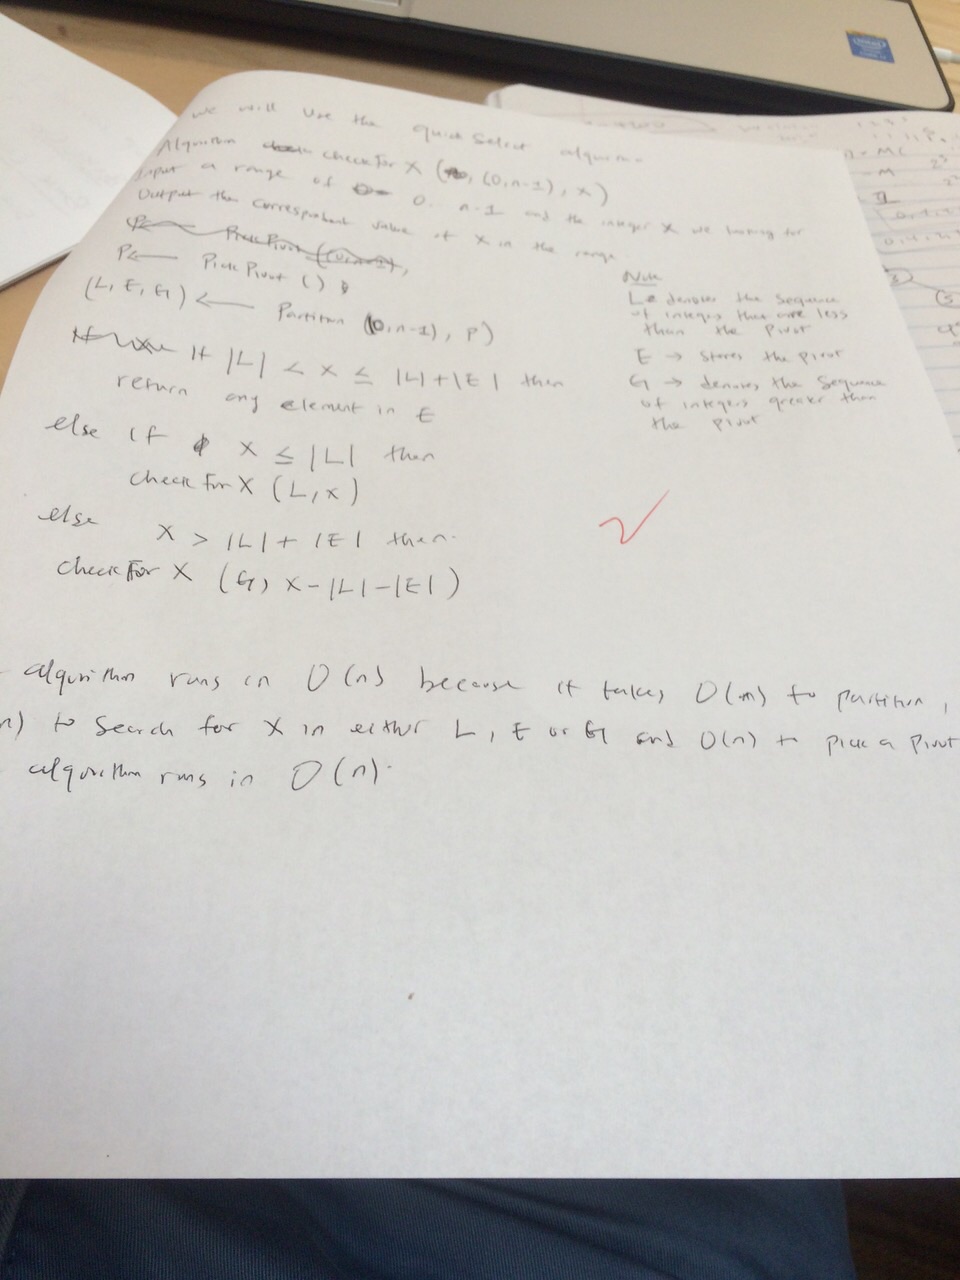 we will use the quick select algorithm
Algorithm checkForX ( , (0, n-1), x)
Input a range of 0.. n-1 and the integer X we looking for
Output the correspondent value of X in the range
P← PickPivot
P← PickPivot ()
(L, E, G) ← Partition (0, n-1), P)
If |L| < x ≤ |L|+|E| then
return any element in E
else if X ≤ |L| then
check for X (L, x)
else X > |L| + |E| then.
check For X (G, X-|L|-|E|)
Note
L denotes the sequence
of integers that are less
than the pivot
E → stores the pivot
G → denotes the sequence
of integers greater than
the pivot
algorithm runs in O(n) because it takes O(n) to partition,
n) to search for X in either L, E or G and O(n) to pick a pivot
algorithm runs in O(n).